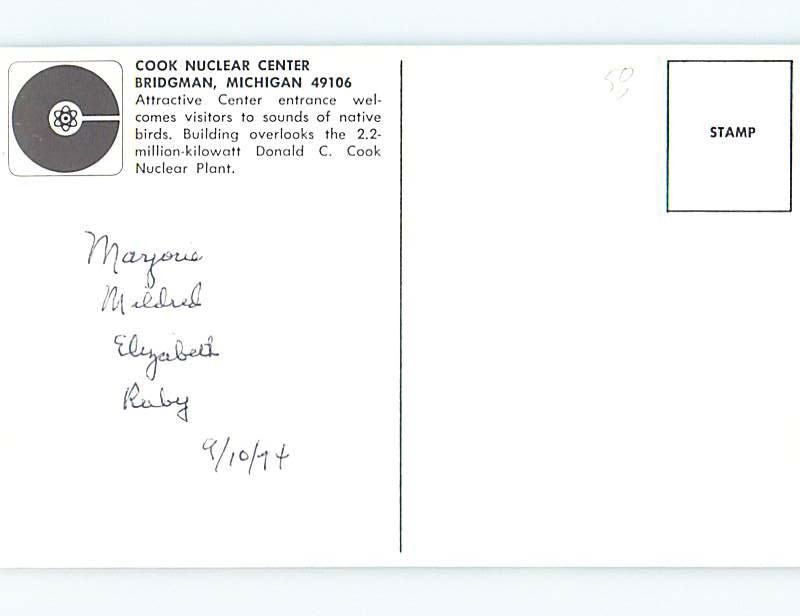 COOK NUCLEAR CENTER
BRIDGMAN, MICHIGAN 49106
Attractive Center entrance wel-
comes visitors to sounds of native
birds. Building overlooks the 2.2-
million-kilowatt Donald C. Cook
Nuclear Plant.
Marjorie
Mildred
Elizabeth
Ruby
9/10/74
STAMP